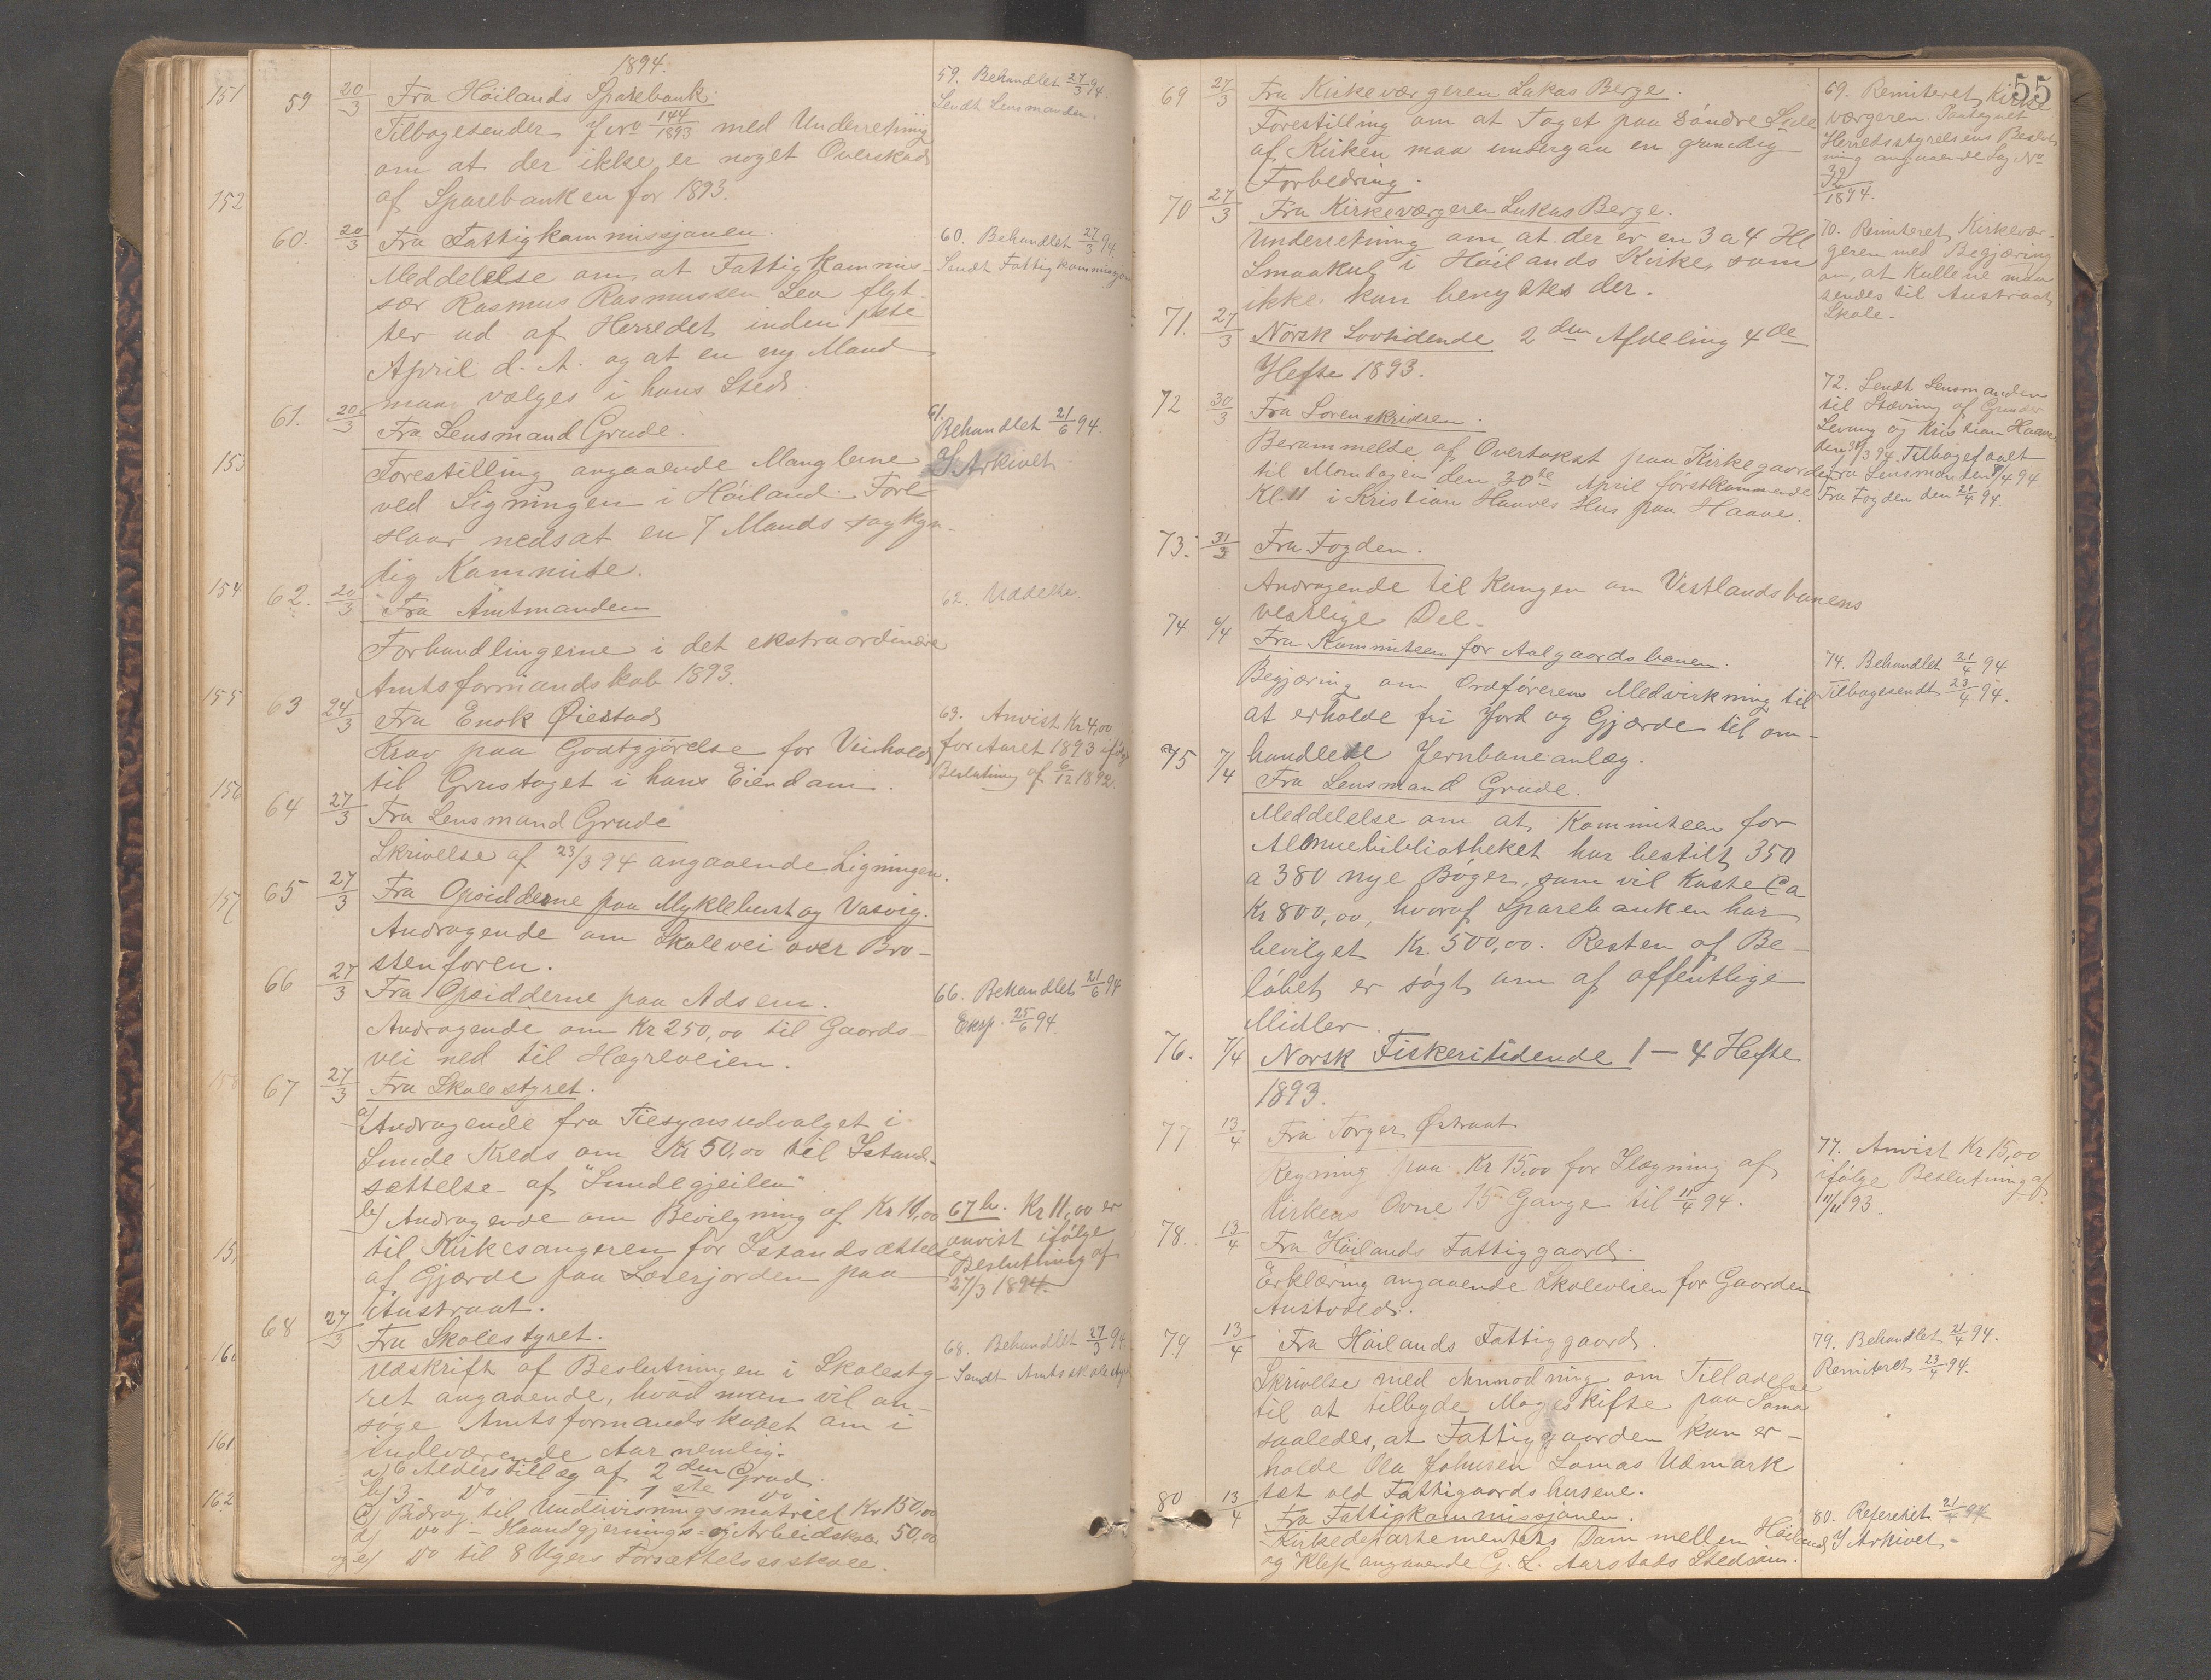 1894.
59 20/3 Fra Höilands Sparebank.
Tilbagesender J No 144/1893 med Underretning
om at der ikke er noget Overskud
af Sparebanken for 1893.
59. Behandlet 27/3 94.
Sendt Lensmanden.
60. 20/3 Fra Fattigkommissjonen.
Meddelelse om, at Fattigkommis-
sær Rasmus Rasmussen Lea flyt-
ter ud af Herredet inden 1ste
April d. A. og at en ny Mand
maa vælges i hans Sted.
60. Behandlet 27/3 94.
Sendt Fattigkommissjon
61. 20/3 Fra Lensmand Grude.
Forestilling angaaende Manglerne
ved Ligningen i Höiland. Forl-
staar nedsat en 7 Mands sagkyn-
dig Kommite.
61.
Behandlet 21/6 94.
I Arkivet
62. 20/3 Fra Amtmanden
Forhandlingerne i det ekstraordinære
Amtsformandskab 1893.
62. Uddelte.
63 24/3 Fra Enok Øiestad
Krav paa Godtgjörelse for Veihold
til Grustaget i hans Eiendom.
63. Anvist Kr 4,00
for Aaret 1893 ifölge
Beslutning af 6/12 1892.
64 27/3 Fra Lensmand Grude
Skrivelse af 23/3 94 angaaende Ligningen.
65 27/3 Fra Opsidderne paa Myklebust og Vasvig.
Andragende om Skolevei over Bro-
stenforen.
66 27/3 Fra Opsidderne paa Adsem.
Andragende om Kr 250,00 til Gaards-
vei ned til Hogreveien.
66. Behandlet 21/6 94
Eksp. 25/6 94.
67 27/3 Fra Skolestyret.
a) Andragende fra Tilsynsudvalget i
Lunde Kreds om Kr 50,00 til Istand-
sættelse af "Lundegjeilen"
b) Andragende om Bevilgning af Kr 11,00
til Kirkesangeren for Istandsættelse
af Gjærde paa Lærerjorden paa
Austraat.
67 b. Kr 11,00 er
anvist ifölge
Beslutning af
27/3 1894.
68 27/3 Fra Skolestyret.
Udskrift af Beslutningen i Skolesty-
ret angaaende, hvad man vil an-
söge Amtsformandskabet om i
indeværende Aar nemlig:
a) 6 Alderstillæg af 2den Grad.
b) 3 Do 1ste Do
c) Bidrag til Undervisningsmatriel Kr 150,00
d) Do - Haandgjernings- og Arbeidsskole 50,00
og e) Do til 8 Ugers Forsættelsesskole.
68. Behandlet 27/3 94
Sendt Amtsskole
151
152
153
154
155
156
157
158
15
160
161
162
55
69 27/3 Fra Kirkeværgeren Lukas Berge.
Forestilling om at Taget paa Söndre Side
af Kirken maa undergaa en grundig
Forbedring.
69. Remiteret Kirke
værgeren. Paategnet
Herredsstyrelsens Beslut
ning angaaende Sag No
32/1894.
70 27/3 Fra Kirkeværgeren Lukas Berge.
Underretning om at der er en 3 a 4 Hl
Smaakul i Höilands Kirke, som
ikke kan benyttes der.
70. Remiteret Kirkevær-
geren med Begjæring
om, at Kullene maa
sendes til Austraat
Skole.
71. 27/3 Norsk Lovtidende 2den Afdeling 4de
Hefte 1893.
72 30/3 Fra Sorenskriveren.
Berammelse af Overtakst paa Kirkegaarden
til Mandagen den 30te April förstkommende
Kl. 11 i Kristian Haaves Hus paa Haave.
72. Sendt Lensmanden
til Stævning af Gunder
Levang og Kristian Haave
den 31/3 94. Tilbagefaaet
fra Lensmanden 8/4 94
Fra Fogden den 21/4 94.
73. 31/3 Fra Fogden.
Andragende til Kongen om Vestlandsbanens
vestlige Del.
74 6/4 Fra Kommiteen for Aalgaardsbanen.
Begjæring om Ordförerens Medvirkning til
at erholde fri Jord og Gjærde til om-
handlede Jernbaneanlæg.
74. Behandlet 21/4 94
Tilbagesendt 23/4 94.
75 7/4 Fra Lensmand Grude.
Meddelelse om at Kommiteen for
Almuebibliotheket har bestilt 350
a 380 nye Böger, som vil koste Ca
Kr 800,00, hvoraf Sparebanken har
bevilget Kr. 500,00. Resten af Be-
löbet er sögt om af offentlige
Midler.
76. 7/4 Norsk Fiskeritidende 1-4 Hefte
1893.
77 13/4 Fra Torger Østraat
Regning paa Kr 15,00 for Ilægning af
Kirkens Ovne 15 Gange til 11/4 94.
77. Anvist Kr 15,00
ifölge Beslutning af
11/11 93.
78. 13/4 Fra Höilands Fattiggaard.
Erklæring angaaende Skoleveien for Gaarden
Austvold.
79 13/4 Fra Höilands Fattiggaard.
Skrivelse med Anmodning om Tilladelse
til at tilbyde Mageskifte paa Soma
saaledes, at Fattiggaarden kan er-
holde Ola Johnsen Somas Udmark
tæt ved Fattigaardshusene.
79. Behandlet 21/4 94.
Remiteret 23/4 94.
80 13/4 Fra Fattigkommissjonen.
Kirkedepartementets Dom mellem Höiland
og Klep angaaende G. L. Aarstads Stedsøn.
80. Refereret 21/4 94
I Arkivet.